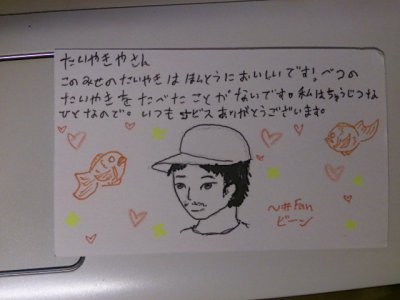 たいやきやさん
このみせのたいやきは ほんとうに おいしいです!。べつの
たいやきを たべた ことが ないです。私はちゅうじつな
ひとなので。いつも サビス ありがとうございます。
~#Fan
ビーン